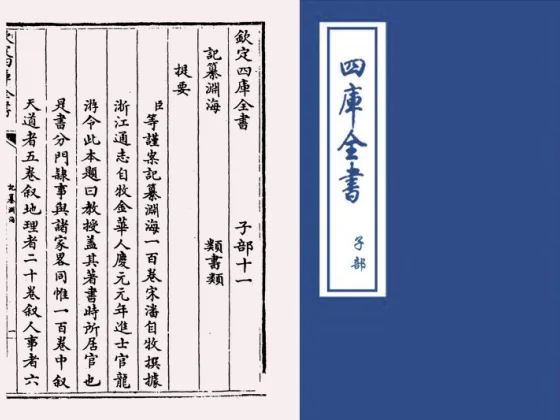 欽定四庫全書 子部十一
記纂淵海 類書類
提要
臣等謹案記纂淵海一百卷宋潘自牧撰據
浙江通志自牧金華人慶元元年進士官龍
游令此本題曰教授蓋其著書時所居官也
是書分門隸事與諸家畧同惟一百卷中叙
天道者五卷叙地理者二十卷叙人事者六
欽定四庫全書
記纂淵海
四庫全書
子部